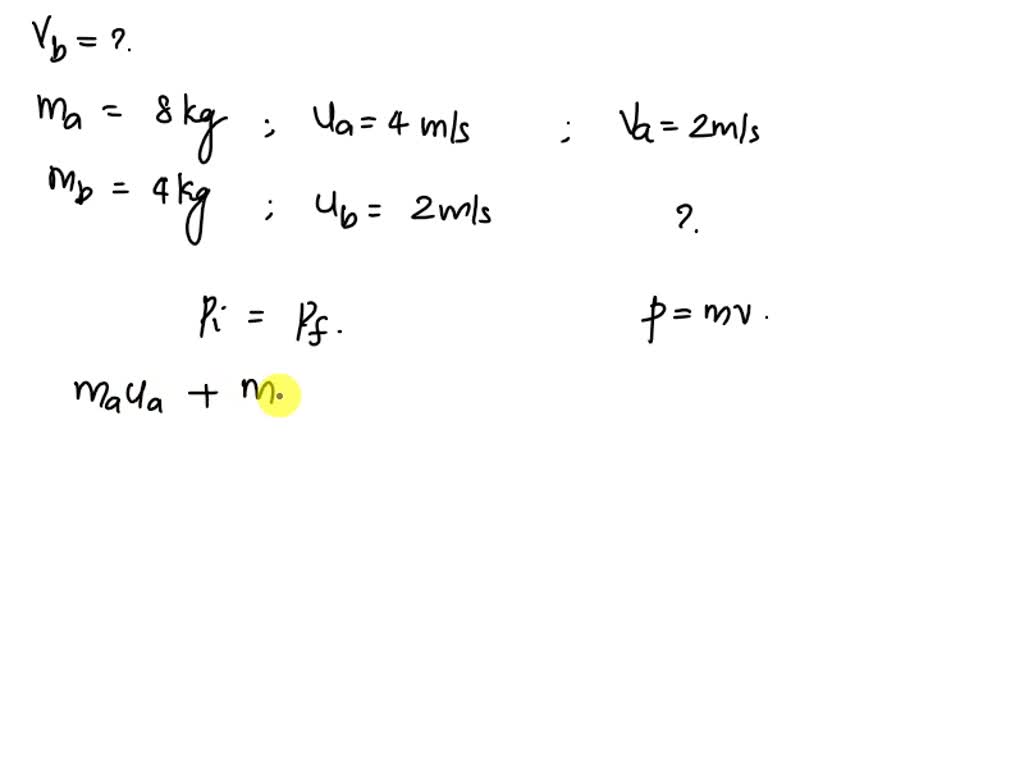 V_b = ?.
m_a = 8 kg ; u_a = 4 m/s ; V_a = 2 m/s
m_b = 4 kg ; u_b = 2 m/s ?.
P_i = P_f . p = mv .
m_a u_a + m